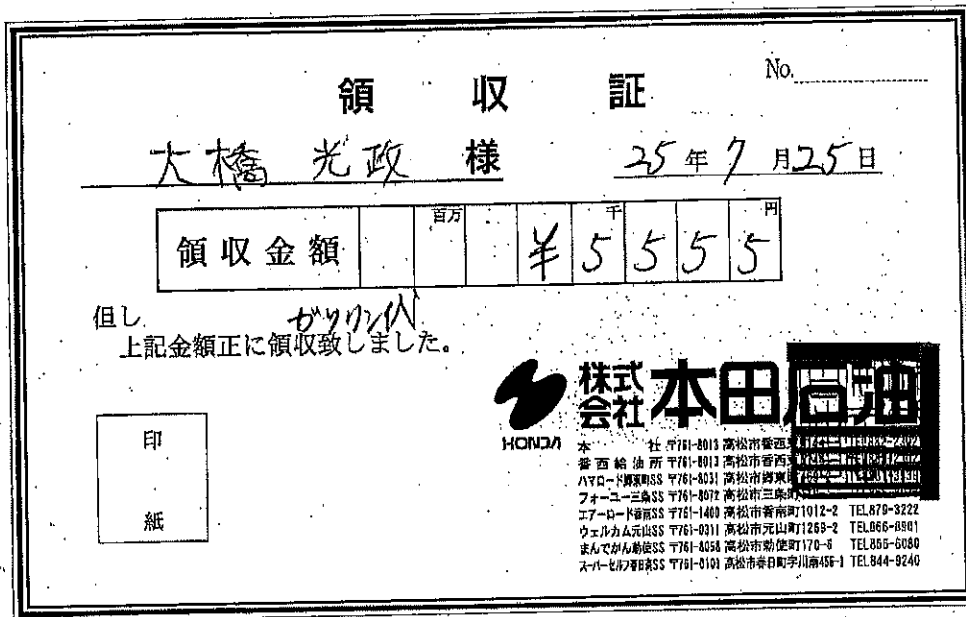 No.
領収証
大橋 光政 様 25年7月25日
領収金額 百万 ¥5千5 5 5円
但し ガソリン代
上記金額正に領収致しました。
印
紙
HONDA
株式会社 本田石油
本社 〒761-8013 高松市香西
香西給油所 〒761-8013 高松市香西
ハマロード郷東町SS 〒761-8031 高松市郷東
フォーユー三条SS 〒761-8072 高松市三条町
エアーロード香南SS 〒761-1400 高松市香南町1012-2 TEL879-3222
ウェルカム元山SS 〒761-0311 高松市元山町1269-2 TEL866-8901
まんでがん勅使SS 〒761-8058 高松市勅使町170-6 TEL866-6080
スーパーセルフ春日南SS 〒761-0101 高松市春日町字川南456-1 TEL844-9240